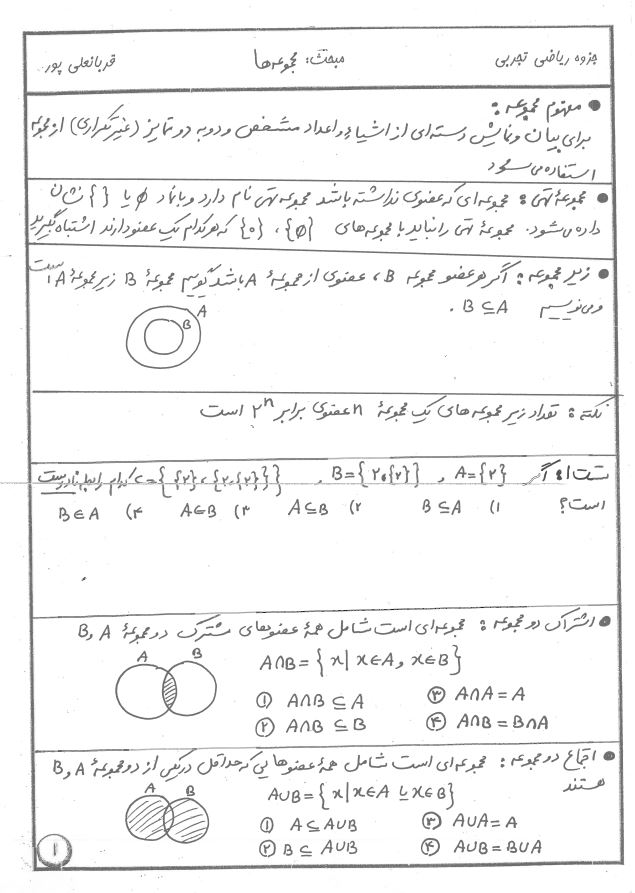 جزوه ریاضی تجربی
مبحث: مجموعه ها
قربانعلی پور
● مفهوم مجموعه:
برای بیان و نمایش دسته ای از اشیاء و اعداد مشخص و دو به دو تمایز (غیر تکراری) از مجموعه
استفاده می شود
● مجموعهٔ تهی: مجموعه ای که عضوی نداشته باشد مجموعه تهی نام دارد و با نماد ∅ یا { } نشان
داده می شود. مجموعهٔ تهی را نباید با مجموعه های {∅}، {۰} که هر کدام یک عضو دارند اشتباه بگیرید
● زیر مجموعه: اگر هر عضو مجموعه B، عضوی از مجموعهٔ A باشد گوییم مجموعهٔ B زیر مجموعهٔ A است
و می نویسیم B ⊆ A .
A
B
نکته: تعداد زیر مجموعه های یک مجموعهٔ n عضوی برابر ۲ⁿ است
تست۱: اگر A={۲} ، B={۲،{۲}} ، C={{۲}،{۲،{۲}}} کدام رابطه نادرست
است؟ ۱) B⊆A ۲) A⊆B ۳) A∈B ۴) B∈A
● اشتراک دو مجموعه: مجموعه ای است شامل همهٔ عضوهای مشترک دو مجموعهٔ A و B
A B
A∩B={x| x∈A و x∈B}
① A∩B⊆A ③ A∩A=A
② A∩B⊆B ④ A∩B=B∩A
● اجتماع دو مجموعه: مجموعه ای است شامل همهٔ عضوهایی که حداقل در یکی از دو مجموعهٔ A و B
هستند
A B
A∪B={x|x∈A یا x∈B}
① A⊆A∪B ③ A∪A=A
② B⊆A∪B ④ A∪B=B∪A
۱